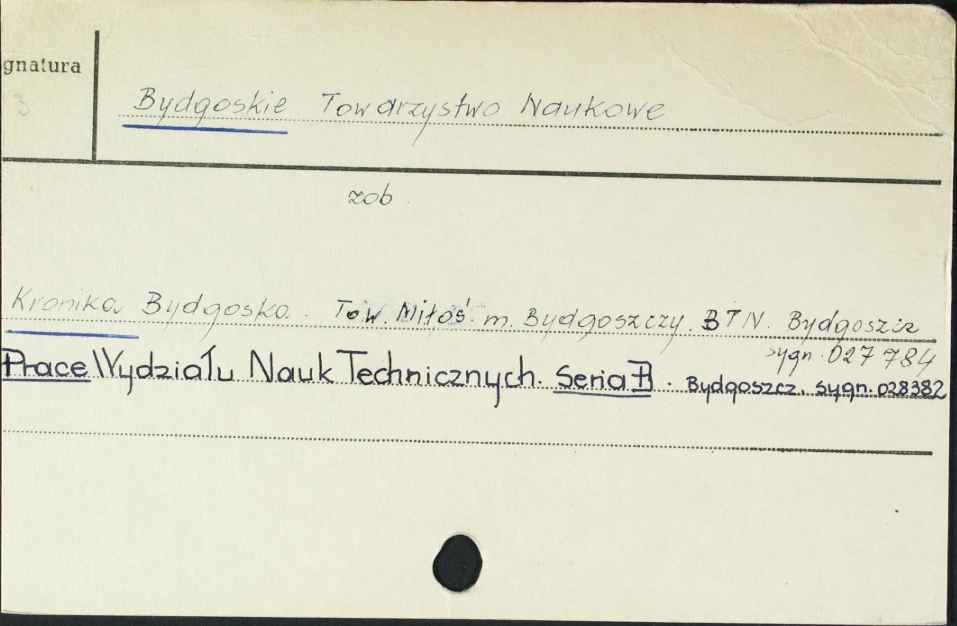 gnatura
3
Bydgoskie Towarzystwo Naukowe
zob
Kronika Bydgoska. Tow. Miłoś. m. Bydgoszczy. BTN. Bydgoszcz
sygn. 027 784
Prace Wydziału Nauk Technicznych. Seria B. Bydgoszcz. sygn. 028382